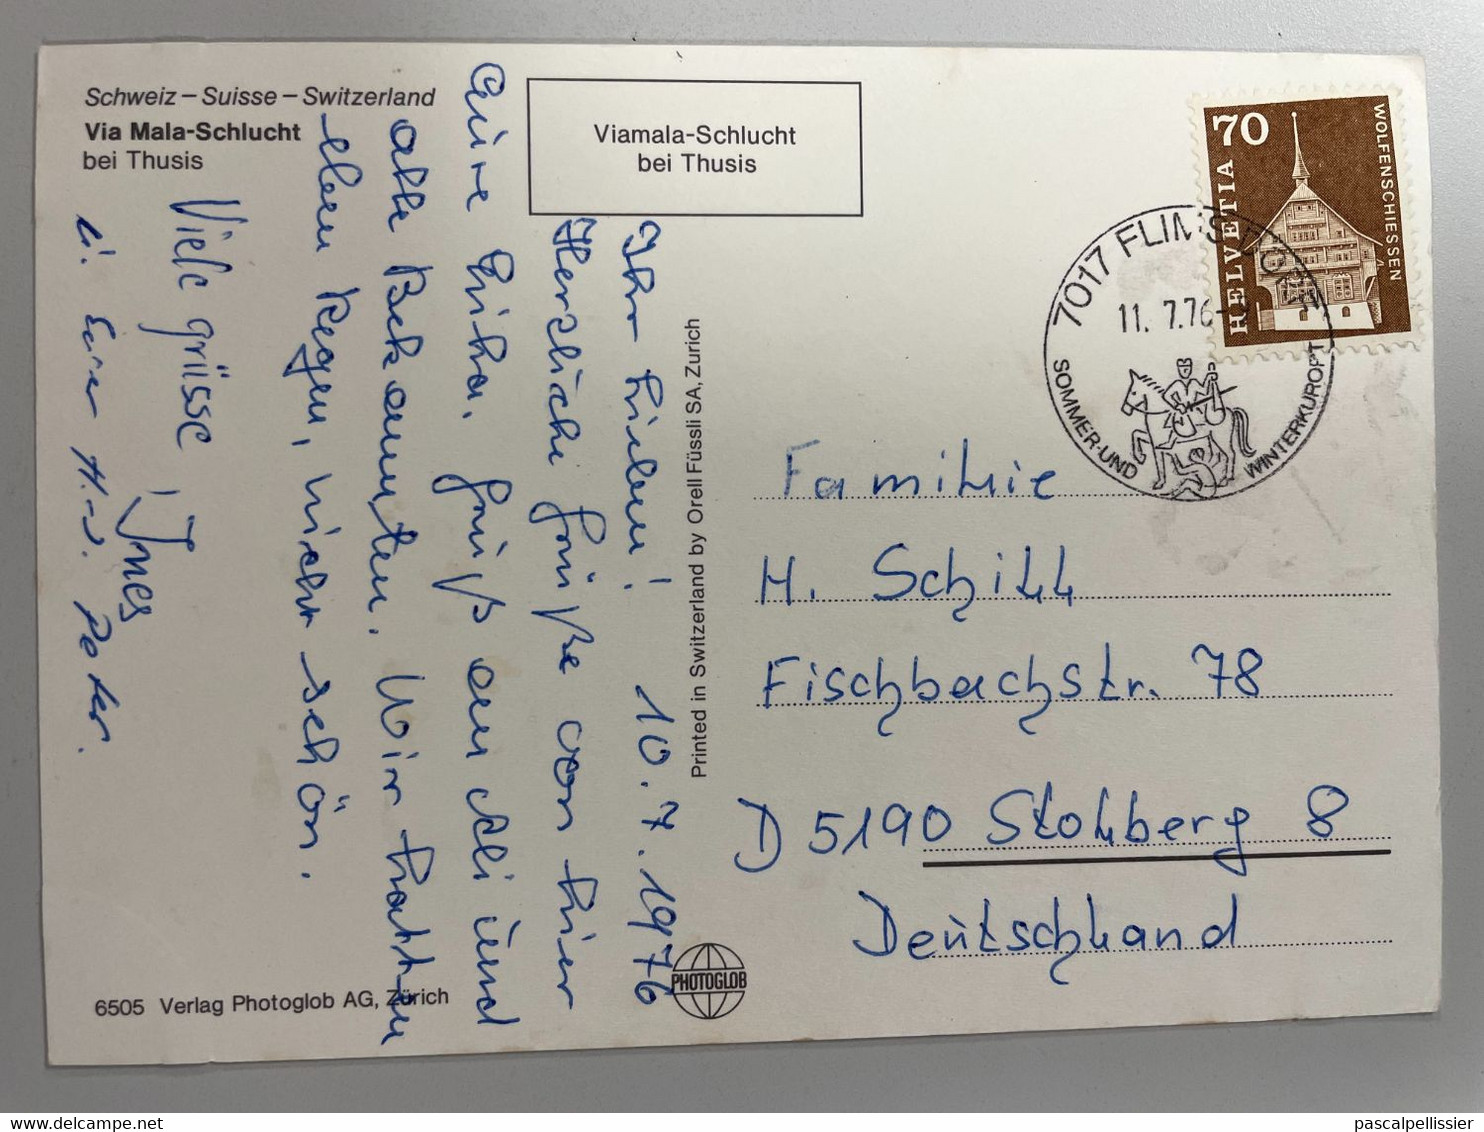 Schweiz – Suisse – Switzerland
Via Mala-Schlucht
bei Thusis
Viamala-Schlucht
bei Thusis
Ihr Lieben! 10.7.1976
Herzliche Grüße von hier
Eure Erika. Gruß an Elli und
alle Bekannten. Wir hatten
eben Regen, nicht schön.
Viele grüsse Ines
H. u. Peter.
Printed in Switzerland by Orell Füssli SA, Zurich
6505 Verlag Photoglob AG, Zürich
PHOTOGLOB
HELVETIA 70
WOLFENSCHIESSEN
7017 FLIMS DORF
11. 7.76
SOMMER- UND WINTERKURORT
Familie
H. Schill
Fischbachstr. 78
D 5190 Stolberg 8
Deutschland
delcampe.net
pascalpellissier